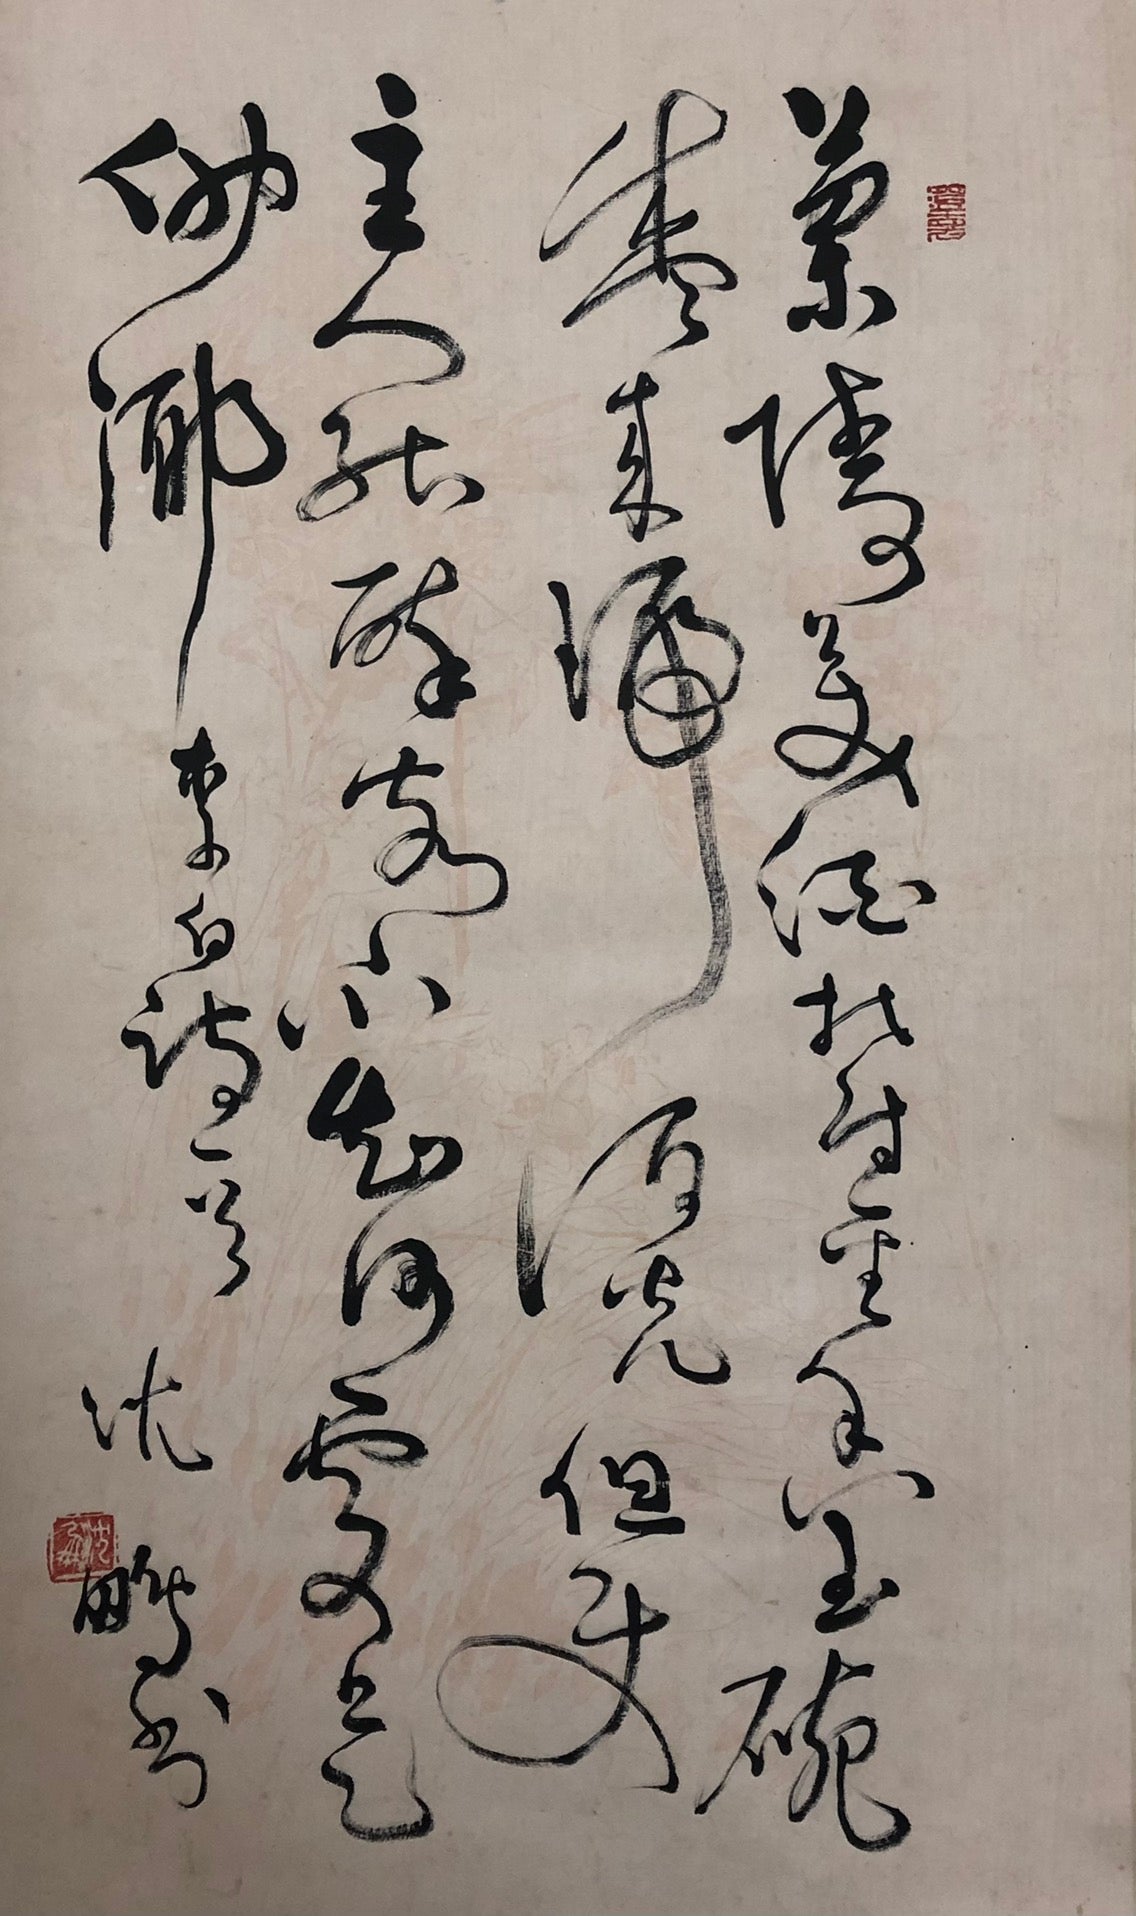 蘭陵美酒鬱金香玉碗
盛來琥珀光但使
主人能醉客不知何處是
他鄉 李白詩一首 沈鵬書
沈鵬